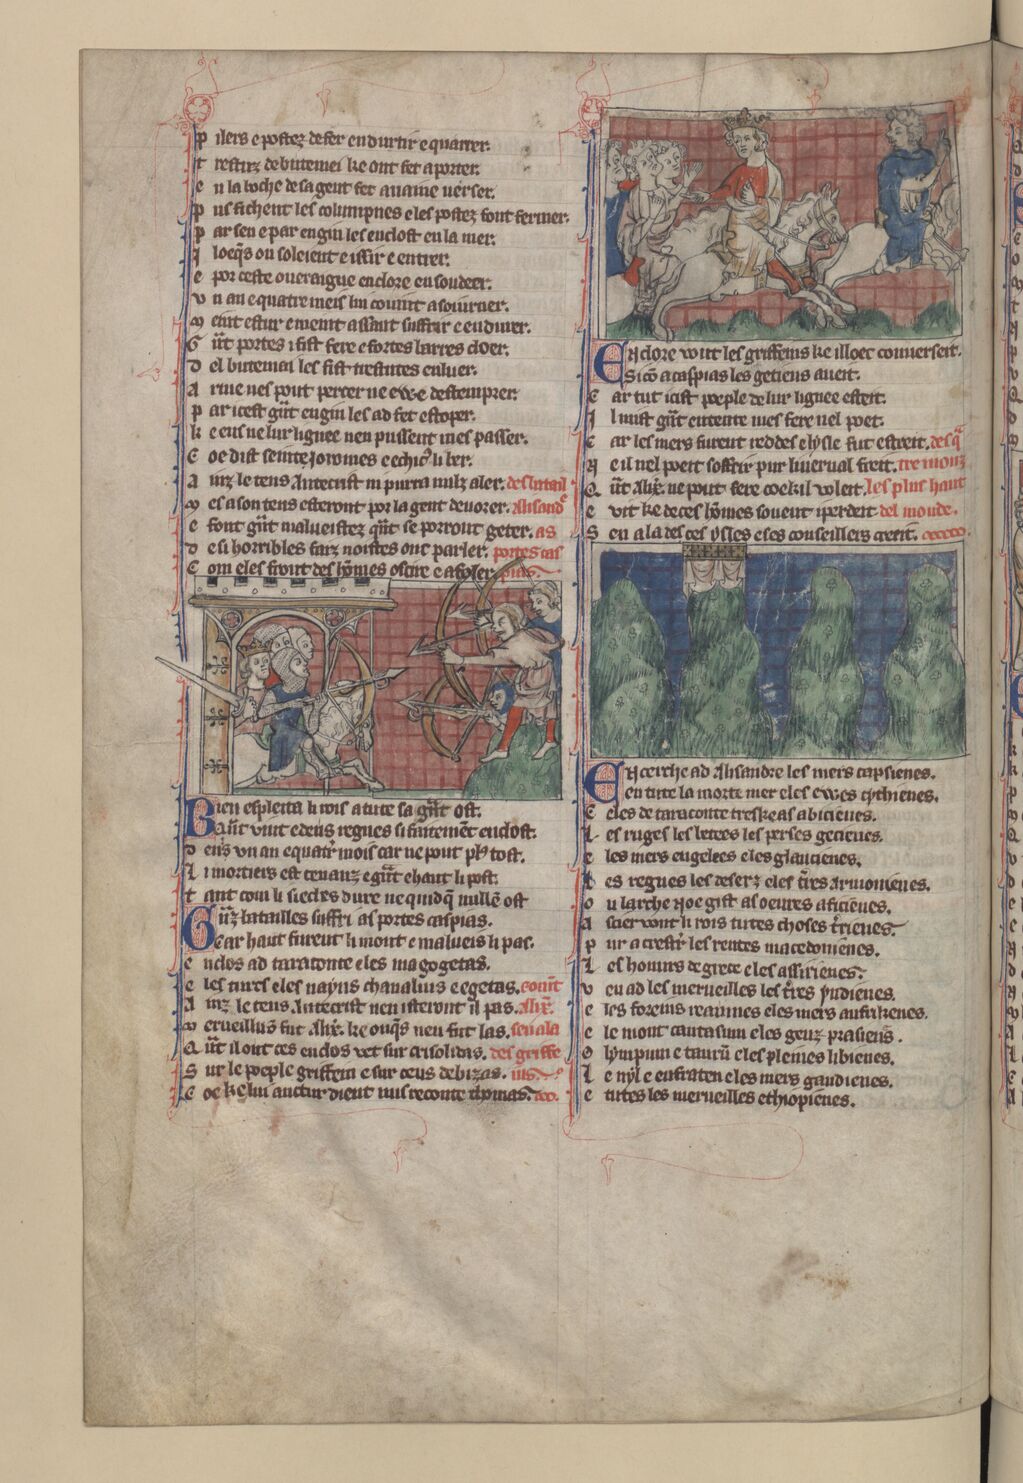 P ilers e postez de fer endurtir e quarrer.
t restuz de butemei ke ont fet aporter.
e n la boche de sa gent fet auaine uerser.
P us fichent les columpnes e les postez font fermer.
P ar sen e par engin les enclost en la mer.
I loeqs ou soleient e issir e entrer.
e por ceste oueraigne enclore en soudeer.
v n an e quatre meis lui couint a soiurner.
G ůt portes i fist fere e fortes barres doer.
d el butemei les fist trestutes enluer.
A rme nes pout percer ne ewe destemprer.
P ar icest gůt engin les ad fet estoper.
k e eus ne lur lignee nen pussent mes passer.
C oe dist seint jeronimes e ethicꝰ li ber.
A inz le tens Antecrist ni purra nulz aler. de la tail
m es a son tens esteront por la gent deuorer. Alisandꝰ
e font gůt malueistez qůt se porront geter. as
d e si horribles farz noistes onc parler. portes cas
C om eles front des hōmes oscire e afoler. pias
B ien espleita li rois a tute sa gůt ost.
Q ůt vint e deus regnes si fintemēt enclost.
d enz vn an e quatr̄ mois car ne pout pꝰ tost.
L i mortiers est tenanz e gůt e haut li post.
t ant com li siecles dure ne quidq̄ nullē ost
G ůz batailles suffri as portes caspias.
C ar haut furent li mont e malueis li pas.
e nclos ad taraconte e les magogetas.
e les turcs e les nayns chanalius e egetas. comt̄
A inz le tens Antecrist nen isteront il pas. Alix̄.
m erueillus fut Alix̄. ke onqs nen fut las. sen ala
Q ůt il out ces enclos vet sur crisolidas. des griffe
S ur le poeple griffein e sur ceus de bizas. ins
C oe ke lui auctur dient nus reconte thomas.
E nclore vout les griffeins ke illoec conuerseit.
Si cō a caspias les getiens aueit.
C ar tut icist poeple de lur lignee esteit.
I l mist gůt entente mes fere nel poet.
C ar les mers furent reddes e lysle fut estreit. des qᵃ
N e il nel poeit soffrir pur liuernal freit. tre monz
Q ůt Alix̄. ne pout fere coe kil voleit. les plus haut
e vit ke de ces hōmes souent i perdeit del monde.
S en ala de ces ysles e ses conseillers creit.
E ncerche ad Alisandre les mers capsienes.
en tute la morte mer e les ewes cythienes.
e les de taraconte treskeas abicienes.
L es ruges les betees les perses gecienes.
e les mers engelees e les glaucienes.
L es regnes les deserz e les t̄res armonienes.
o u larche noe gist as oeures aficienes.
A scer vout li rois tutes choses t̄rienes.
P ur acrestr̄ les rentes macedonienes.
L es honurs de grece e les assirienes.
v eu ad les merueilles les t̄res yndienes.
e les foreins reaumes e les mers aufrikenes.
e le mont caucasum e les genz prasienes.
o lympum e taurū e les pleines libienes.
L e nyl e eufraten e les mers gaudienes.
e tutes les merueilles ethiopienes.